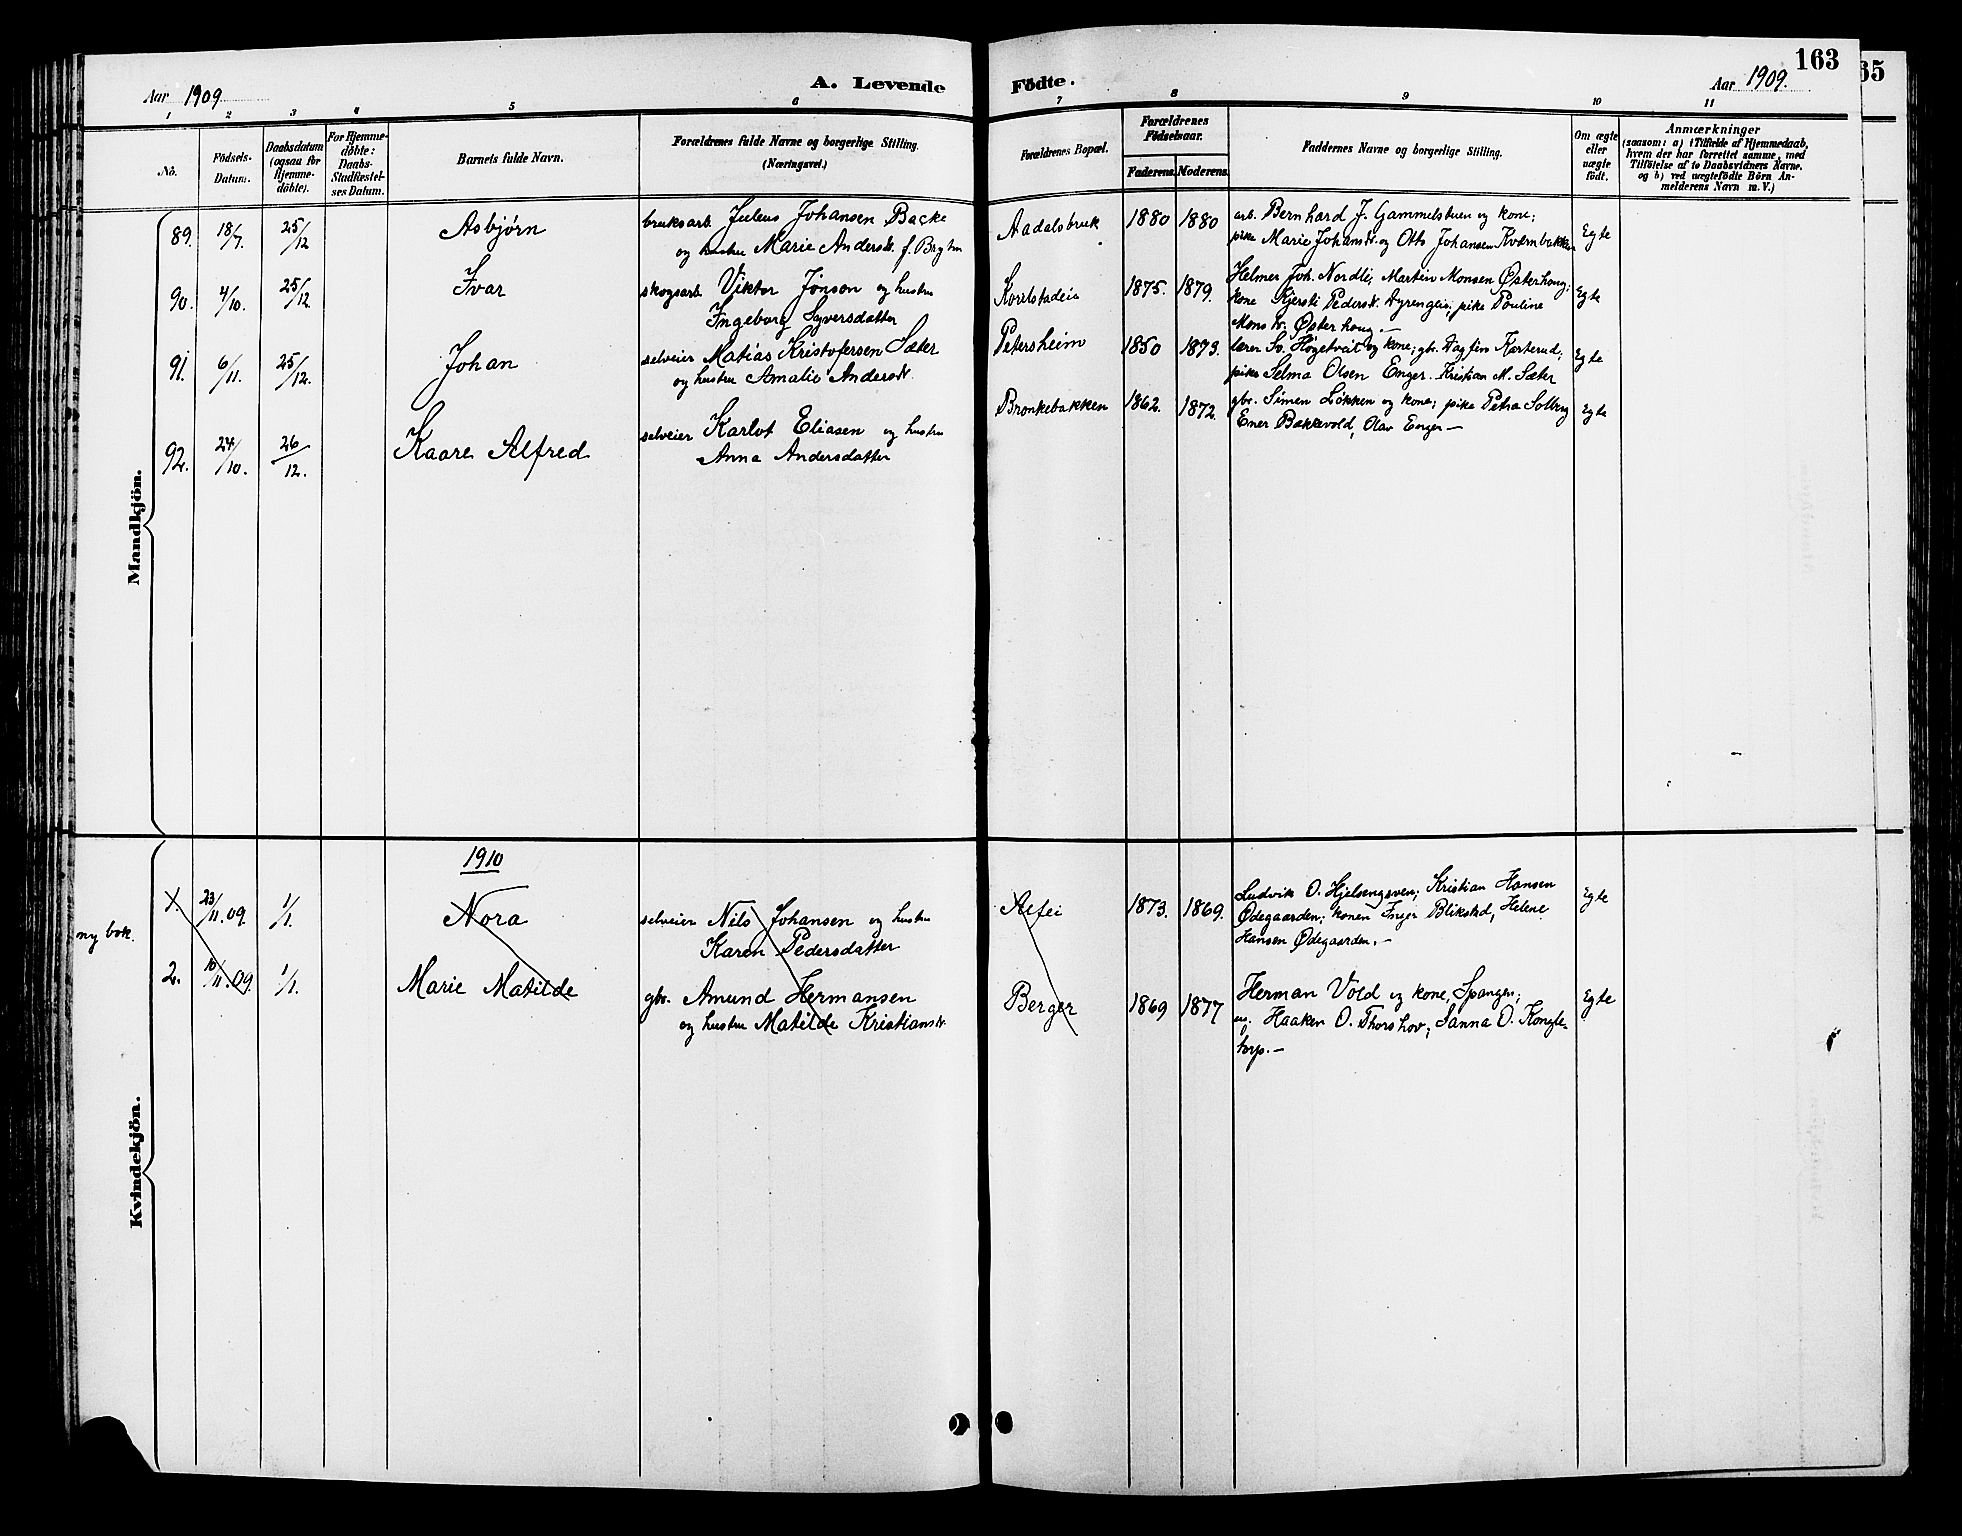 163
65
Aar 1909.
A. Levende
Födte.
Aar 1909.
1 2 3 4 5 6 7 8 9 10 11
No.
Födsels-
Datum.
Daabsdatum
(ogsaa for
Hjemme-
döbte).
For Hjemme-
döbte:
Daabs-
Stadfæstel-
ses Datum.
Barnets fulde Navn.
Forældrenes fulde Navne og borgerlige Stilling.
(Næringsvei.)
Forældrenes Bopæl.
Forældrenes
Födselsaar.
Faderens. Moderens.
Faddernes Navne og borgerlige Stilling.
Om ægte
eller
uægte
födt.
Anmærkninger
(saasom: a) i Tilfælde af Hjemmedaab,
hvem der har forrettet samme, med
Tilföielse af to Daabsvidners Navne,
og b) ved uægtefödte Börn An-
melderens Navn m. V.)
Mandkjön.
89. 18/7. 25/12 Asbjørn
bruksarb. Julius Johansen Backe
og hustru Marie Andersdt. f.
Aadalsbruk 1880 1880
arb. Bernhard J. Gammelstuen og kone;
pike Marie Johansdt. og Otto Johansen Kværnbakken
Egte
90. 4/10. 25/12 Ivar
skogsarb. Viktor Jonson og hustru
Ingeborg Syversdatter
1875. 1879.
Helmer Joh. Nordli; Martin Monsen Østerhoug;
kone Kjersti Pedersdt. pike Pouline
Monsdt. Østerhoug.—
Egte
91. 6/11. 25/12. Johan
selveier Matias Kristofersen Sæter
og hustru Amalie Andersdt.
Petersheim 1850 1873.
lærer Sv. Høgetveit og kone; gbr. Dagfin Karterud;
pike Selma Olsen Enger. Kristian M. Sæter
Egte
92. 24/10. 26/12. Kaare Alfred
selveier Karlot Eliasen og hustru
Anna Andersdatter
Bronkebakken 1862. 1872.
gbr. Simen Løkken og kone; pike Petra Solberg
Ener Bakkevold, Olav Enger—
Egte
Kvindekjön.
1910
ny bok.
1. 23/11.09. 1/1. Nora
selveier Nils Johansen og hustru
Karen Pedersdatter
Alfei 1873. 1869.
Ludvik O. Hjelsengsven; Kristian Hansen
Ødegaarden; konen Inger Blikstad, Helene
Hansen Ødegaarden.—
Egte
2. 10/11.09. 1/1. Marie Matilde
gbr. Amund Hermansen
og hustru Matilde Kristiansdt.
Berger 1869 1877
Herman Vold og kone, Spangen;
Haaken O. Thorshov; Sanna O. Kongle-
torp.—
Egte